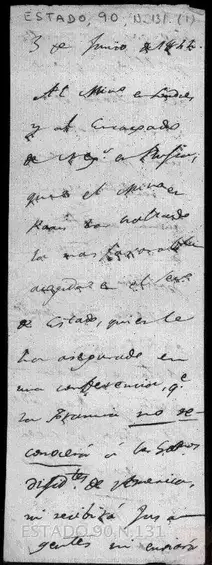 ESTADO, 90, N.131 (1)
3 de Junio de 1822.
Al Mtro en Londres
y al Encargado
de Neg.s en Rusia,
que el Mtro en
Paris ha
la mas favorable
acogida en el
de Estado, quien le
ha asegurado en
una conferencia, q.e
la Francia no re-
conocerá á los Gobos
disid.tes de America,
ni recibirá sus a-
gentes ni enviará
ESTADO,90,N.131